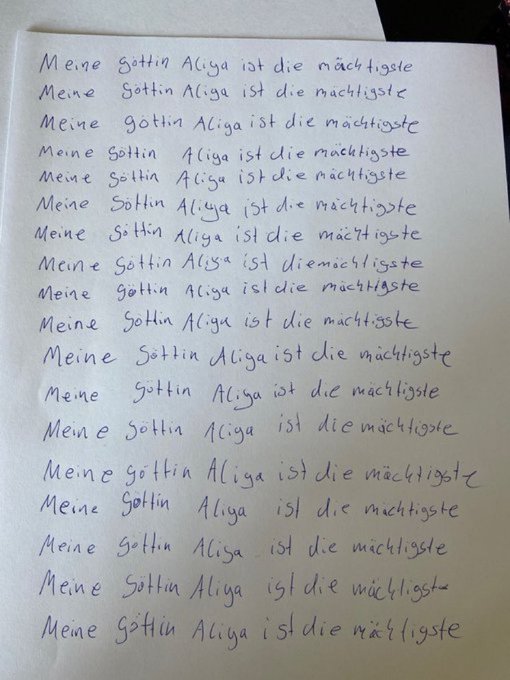 Meine göttin Aliya ist die mächtigste
Meine Göttin Aliya ist die mächtigste
Meine göttin Aliya ist die mächtigste
Meine Göttin Aliya ist die mächtigste
Meine Göttin Aliya ist die mächtigste
Meine Göttin Aliya ist die mächtigste
Meine Göttin Aliya ist die mächtigste
Meine Göttin Aliya ist diemächtigste
Meine göttin Aliya ist die mächtigste
Meine Göttin Aliya ist die mächtigste
Meine Göttin Aliya ist die mächtigste
Meine Göttin Aliya ist die mächtigste
Meine Göttin Aliya ist die mächtigste
Meine göttin Aliya ist die mächtigste
Meine Göttin Aliya ist die mächtigste
Meine Göttin Aliya ist die mächtigste
Meine Göttin Aliya ist die mächtigste
Meine göttin Aliya ist die mächtigste